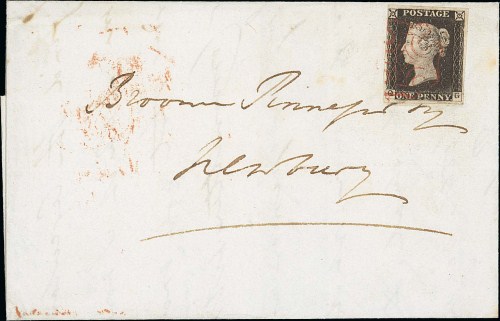 POSTAGE
G
ONE PENNY
Broome Pinneger Esq
Newbury